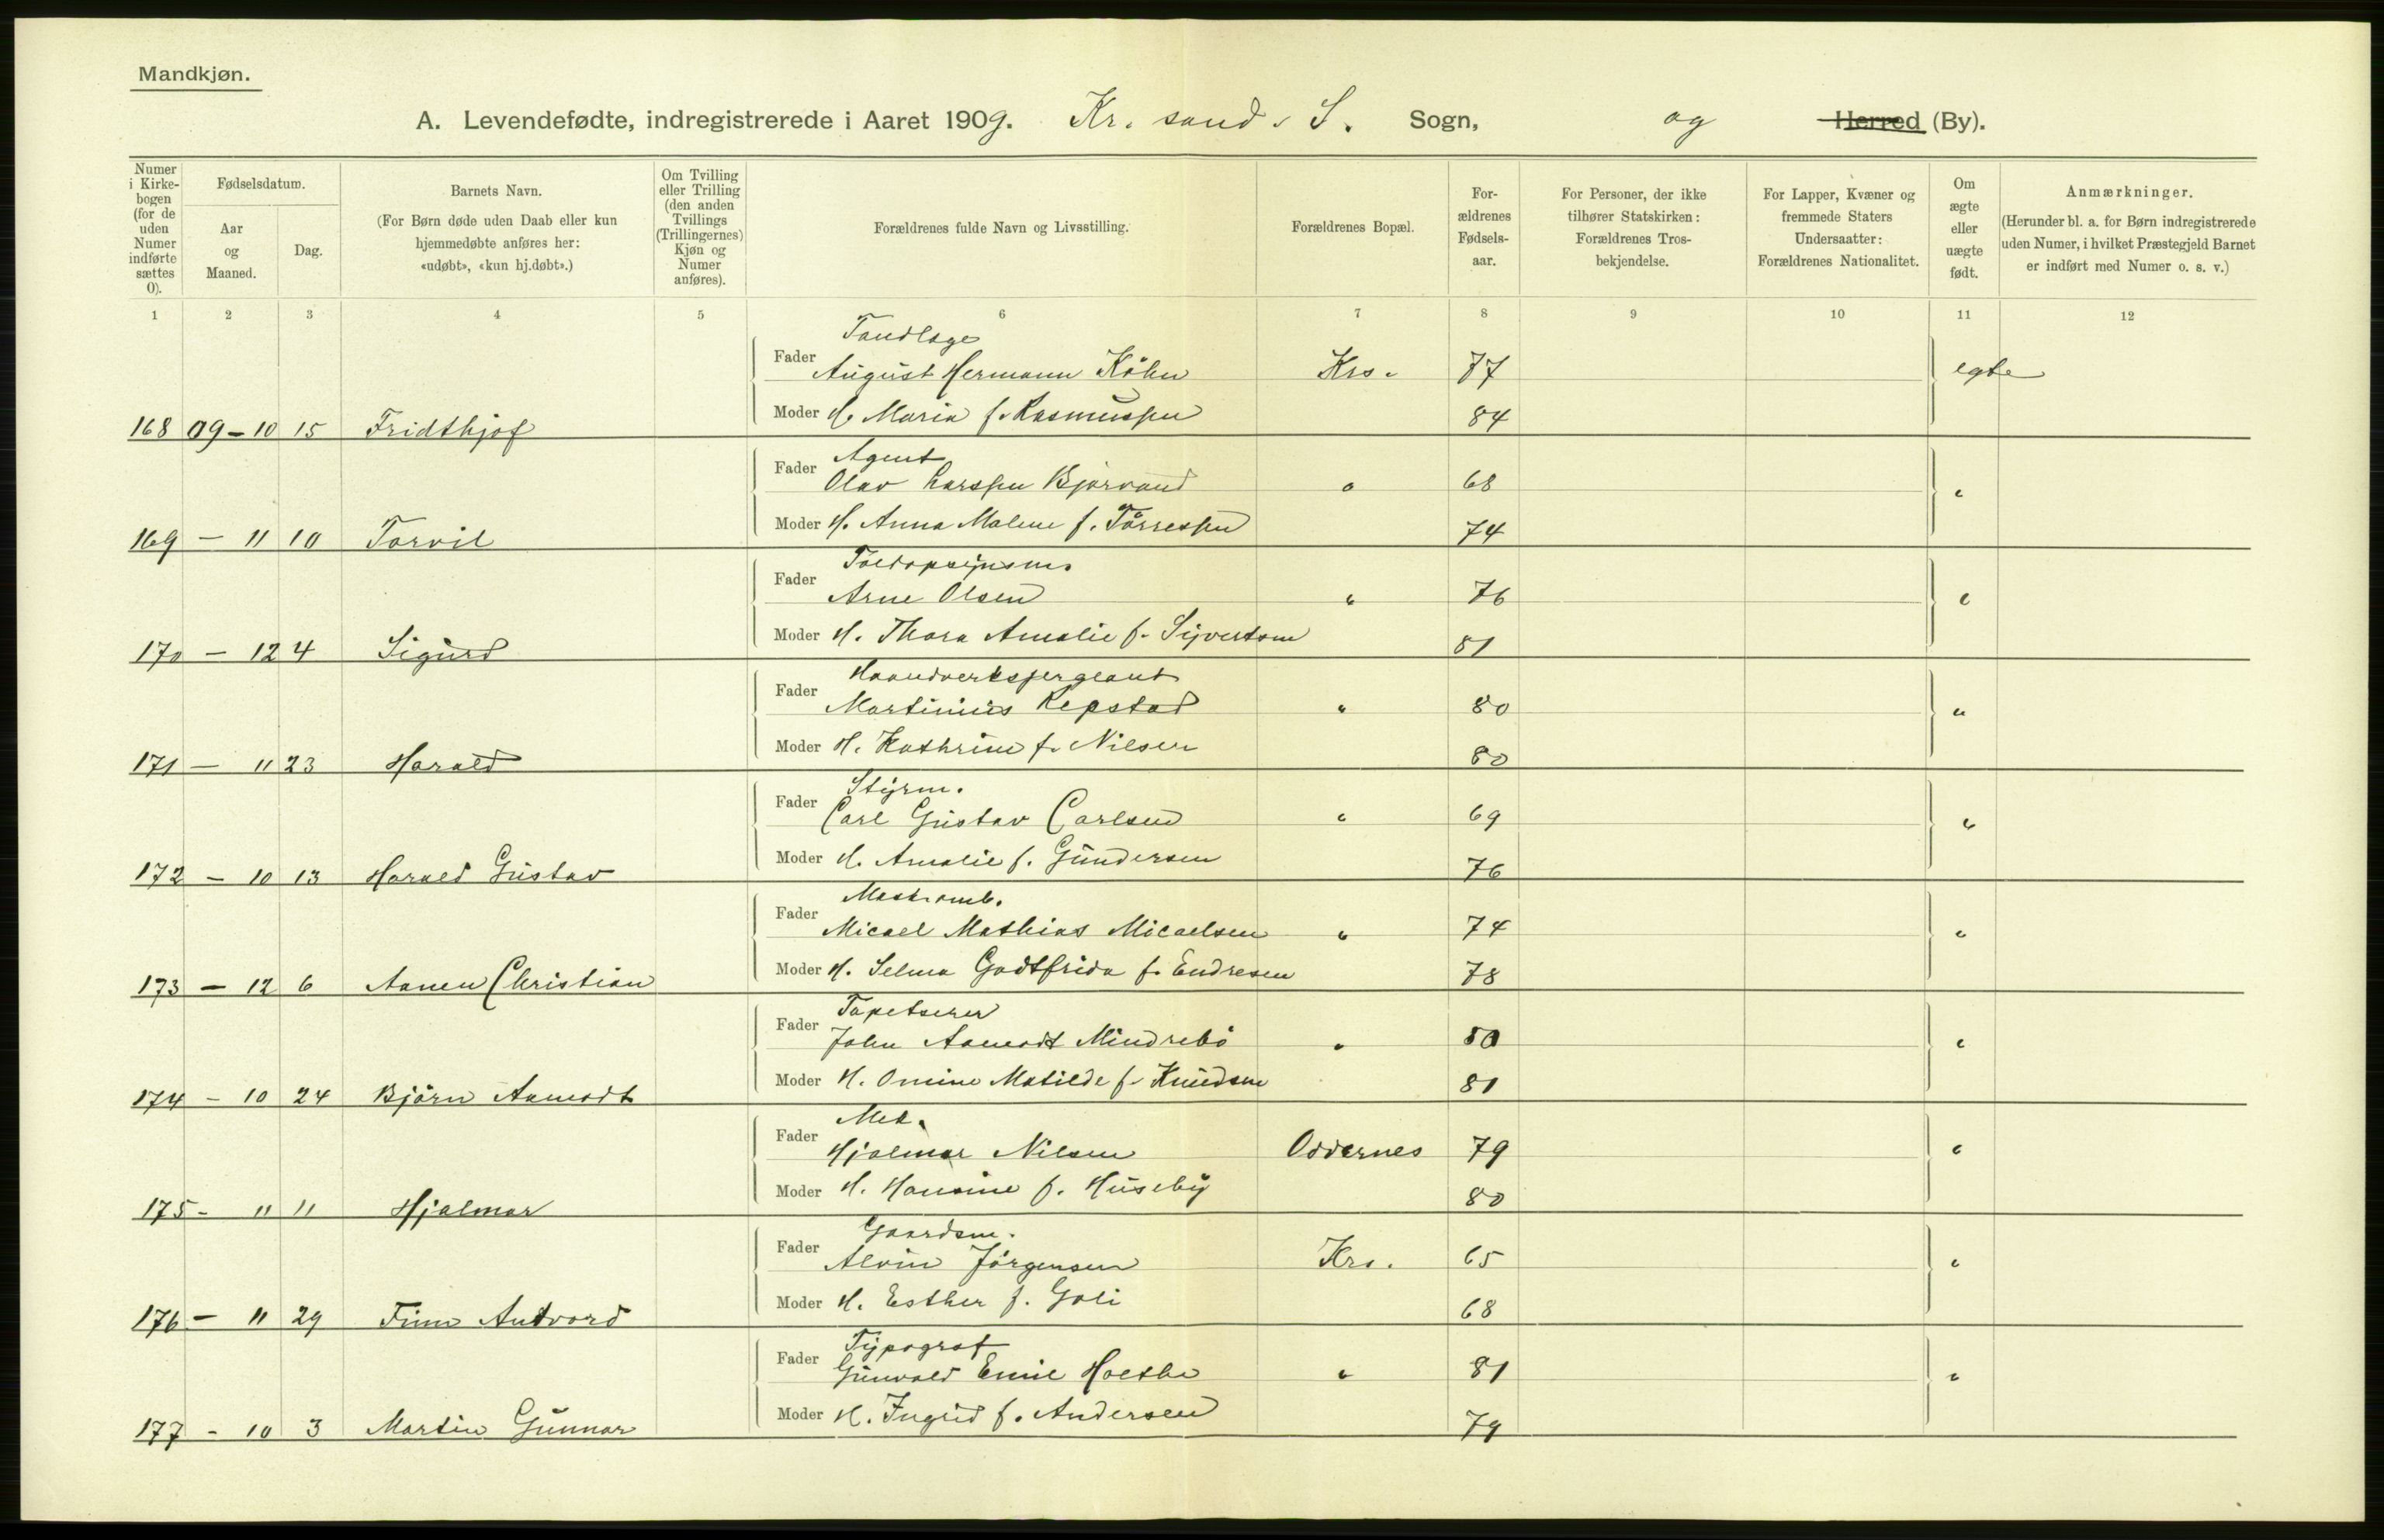 Mandkjøn.
A. Levendefødte, indregistrerede i Aaret 1909. Kr. sand. S. Sogn, og Herred (By).
Numer i Kirkebogen (for de uden Numer indførte sættes 0).
Fødselsdatum.
Aar og Maaned.
Dag.
Barnets Navn.
(For Børn døde uden Daab eller kun hjemmedøbte anføres her: «udøbt», «kun hj.døbt».)
Om Tvilling eller Trilling (den anden Tvillings (Trillingernes) Kjøn og Numer anføres).
Forældrenes fulde Navn og Livsstilling.
Forældrenes Bopæl.
Forældrenes Fødselsaar.
For Personer, der ikke tilhører Statskirken: Forældrenes Trosbekjendelse.
For Lapper, Kvæner og fremmede Staters Undersaatter: Forældrenes Nationalitet.
Om ægte eller uægte født.
Anmærkninger.
(Herunder bl. a. for Børn indregistrerede uden Numer, i hvilket Præstegjeld Barnet er indført med Numer o. s. v.)
1 2 3 4 5 6 7 8 9 10 11 12
Tandlæge
Fader August Hermann Köhn Krs. 77 egte
Moder H. Maria f. Rasmussen 84
168 09-10 15 Fridthjof
Agent
Fader Olav Larssen Bjorvand " 68 "
Moder H. Anna Malene f. Tørressen 74
169 - 11 10 Torvil
Toldopsynsm.
Fader Arne Olsen " 76 "
Moder H. Thora Amalie f. Syvertsen 81
170 - 12 4 Sigurd
Haandverkssergeant
Fader Martinius Repstad " 80 "
Moder H. Kathrine f. Nilsen 80
171 - " 23 Harald
Styrm.
Fader Carl Gustav Carlsen " 69 "
Moder H. Amalie f. Gundersen 76
172 - 10 13 Harald Gustav
Fader Micael Mathias Micaelsen " 74 "
Moder H. Selma Godtfrida f. Endresen 78
173 - 12 6 Aanen Christian
Tapetserer
Fader John Aamodt Mindrebö " 80 "
Moder H. Omine Matilde f. Knudsen 81
174 - 10 24 Björn Aamodt
Mek.
Fader Hjalmar Nilsen Oddernes 79 "
Moder H. Hansine f. Huseby 80
175 - " 11 Hjalmar
Gaardsm.
Fader Alvin Jörgensen Krs. 65 "
Moder H. Esther f. Goli 68
176 - 11 29 Finn Antvord
Typograf
Fader Gunvald Emil Holthe " 81 "
Moder H. Ingrid f. Andersen 79
177 - 10 3 Martin Gunnar